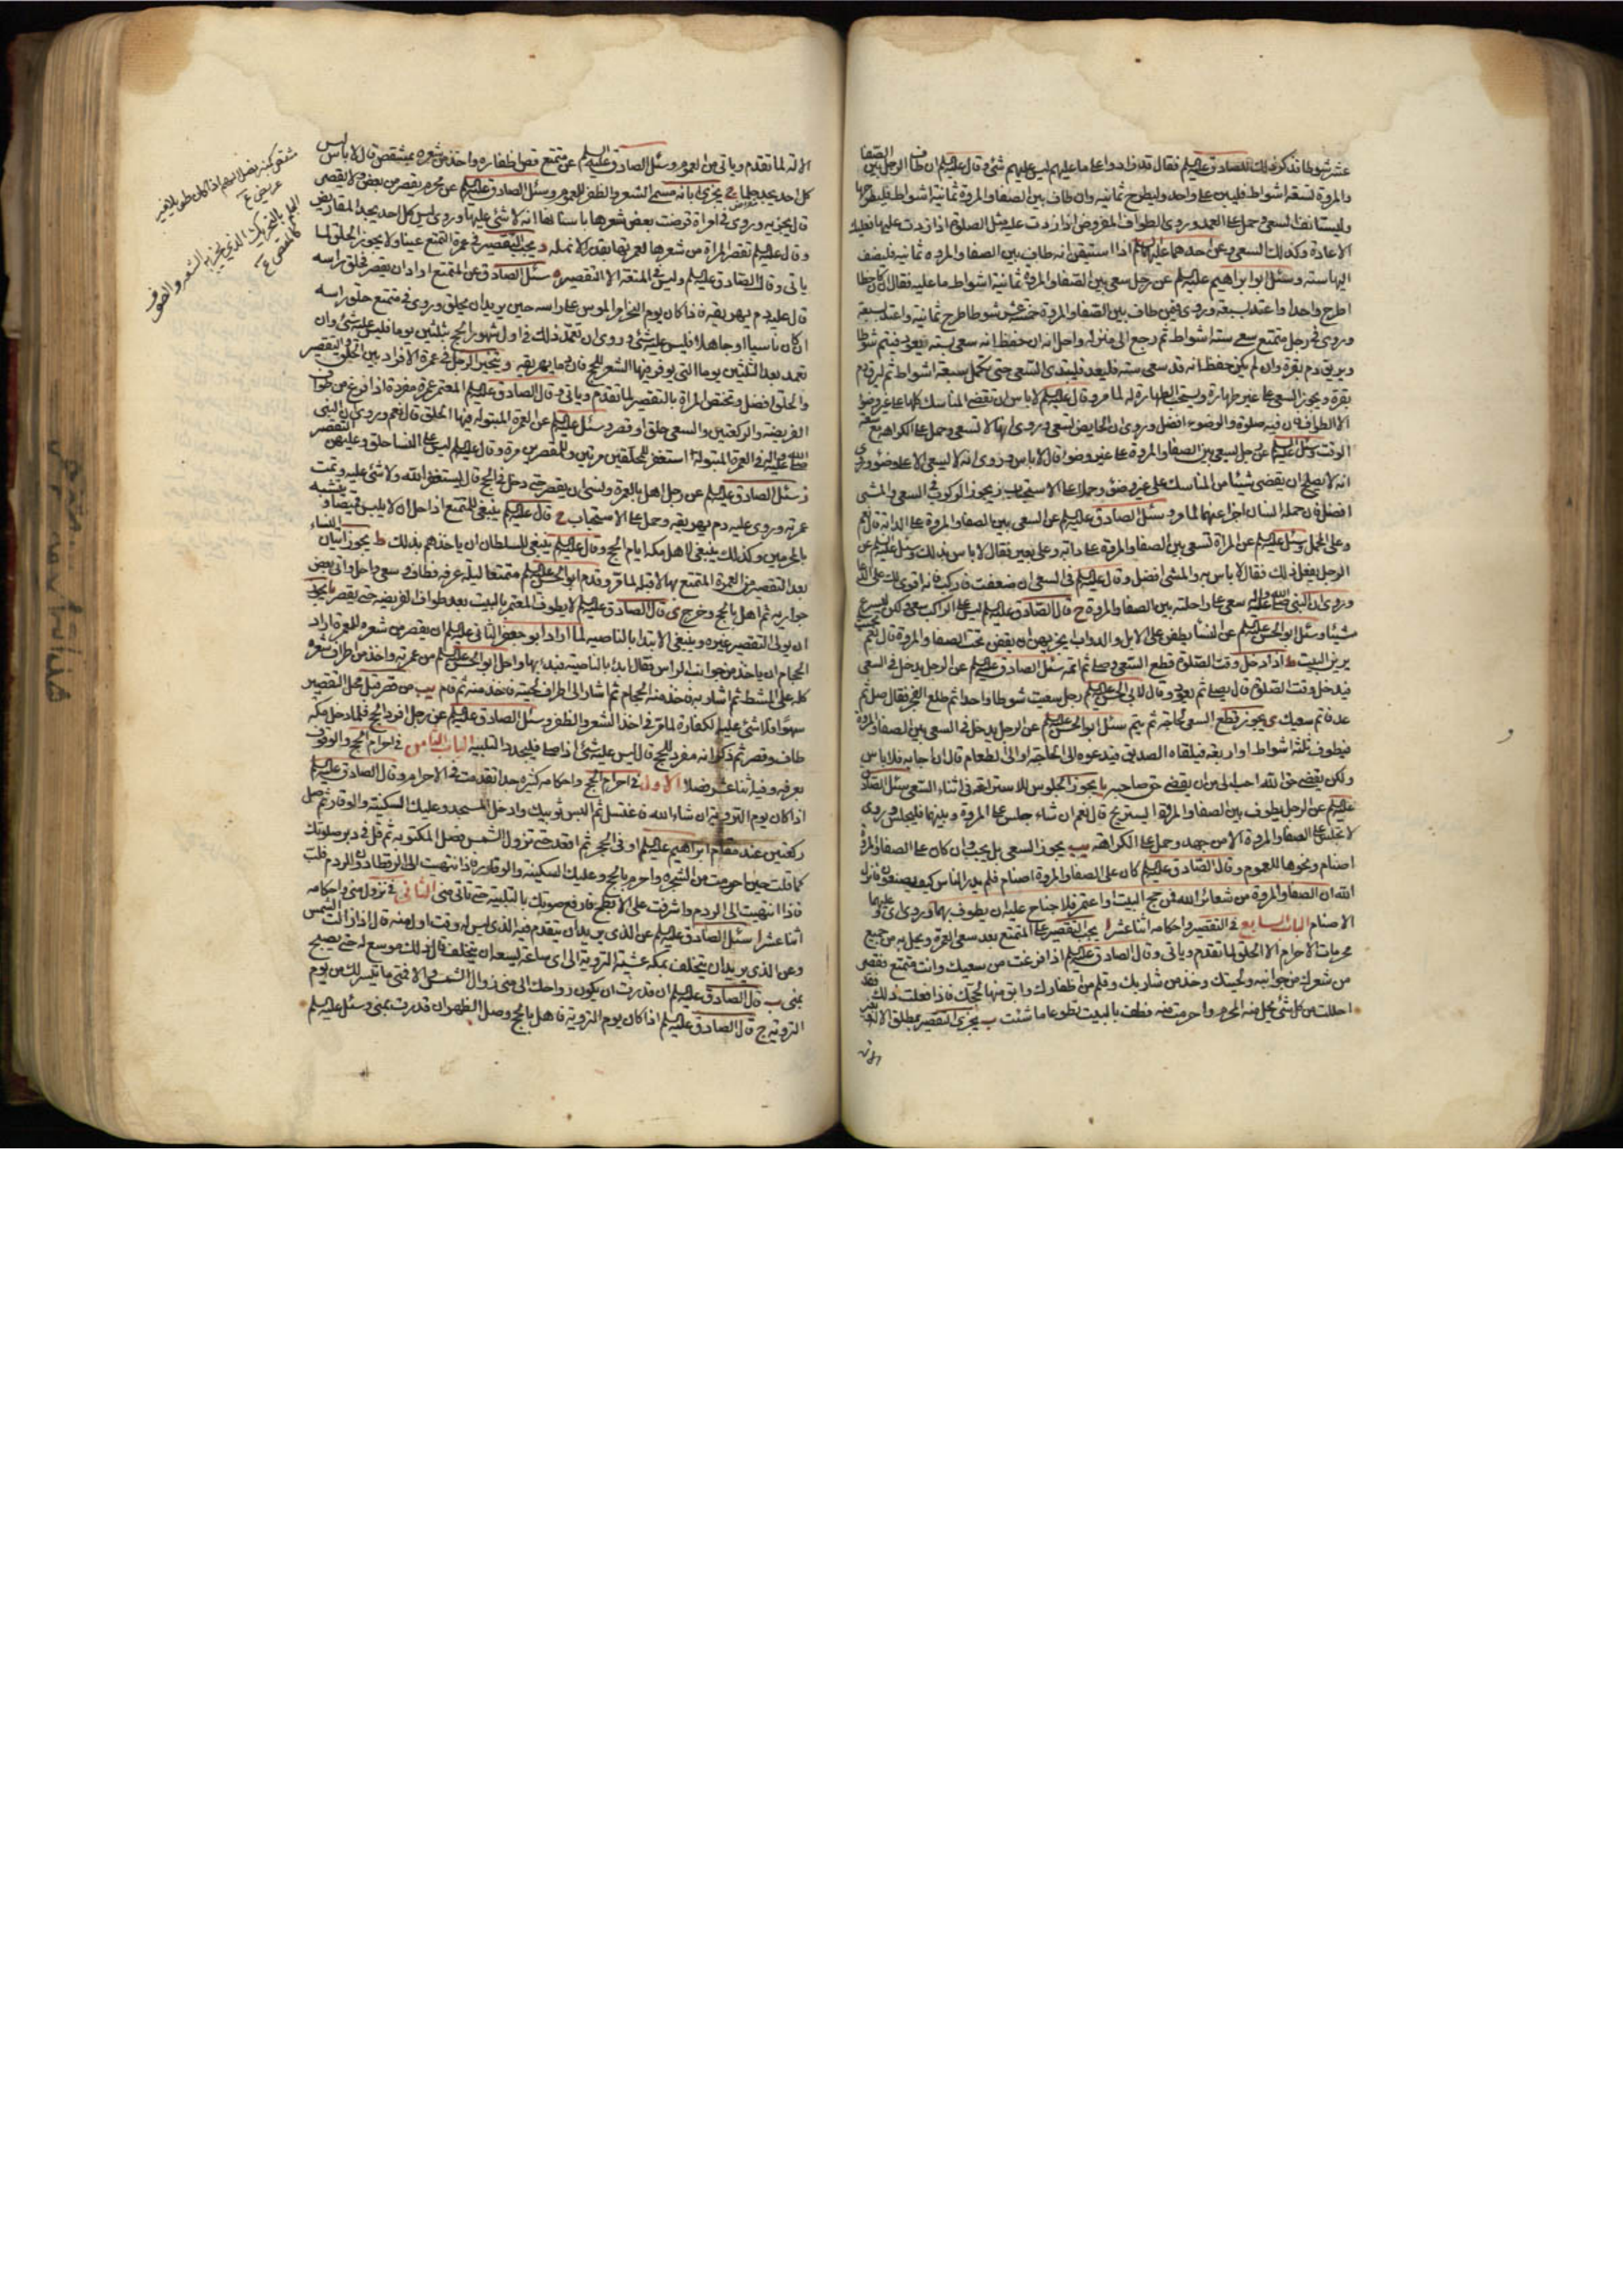 عشر شوطا فذكر ذلك للصادق عليه السلام فقال قد زادوا على ما عليهم ليس عليهم شئ و قال عليه السلام ان طاف الرجل بين الصفا
والمروة تسعة اشواط فليسع على واحد وليطرح ثمانية وان طاف بين الصفا والمروة ثمانية اشواط فليطرحها
وليستانف السعي وحمل على العمد وروى الطواف المفروض اذا زدت عليه مثل الصلوة اذا زدت عليها فعليك
الاعادة وكذلك السعي وعن احدهما عليهما السلام اذا استيقن انه طاف بين الصفا والمروة ثمانية فليضف
اليها ستة وسئل ابو ابراهيم عليه السلام عن رجل سعى بين الصفا والمروة ثمانية اشواط ما عليه فقال ان كان خطا
اطرح واحدا واعتد بسبعة وروى فيمن طاف بين الصفا والمروة خمسة عشر شوطا طرح ثمانية واعتد بسبعة
وروى في رجل متمتع سعى ستة اشواط ثم رجع الى منزله واحل انه ان حفظ انه سعى ستة فليعد فيتم شوطا
ويريق دم بقرة وان لم يكن حفظ انه قد سعى ستة فليعد فليبتدئ السعي حتى يكمل سبعة اشواط ثم ليرق دم
بقرة ويجوز السعي على غير طهارة ويستحب الطهارة له لما مر وقال عليه السلام لا باس ان تقضي المناسك كلها على غير وضوء
الا الطواف فان فيه صلوة والوضوء افضل وروى ان الحايض تسعى وروى انها لا تسعى وحمل على الكراهة مع سعة
الوقت وسئل عليه السلام عن رجل يسعى بين الصفا والمروة على غير وضوء قال لا باس وروى انه لا يسعى الا على وضوء وروى
انه لا يصلح ان يقضي شيئا من المناسك على غير وضوء وحملا على الاستحباب ز يجوز الركوب في السعي والمشي
افضل فان حمله انسان اجزا عنهما لما مر وسئل الصادق عليه السلام عن السعي بين الصفا والمروة على الدابة قال نعم
وعلى المحمل وسئل عليه السلام عن المراة تسعى بين الصفا والمروة على دابة وعلى بعير فقال لا باس بذلك وسئل عليه السلام عن
الرجل يفعل ذلك فقال لا باس به والمشي افضل وقال عليه السلام في السعي ان ضعفت فاركب فانه اقوى لك على الدعا
وروى ان النبي صلى الله عليه واله سعى على راحلته بين الصفا والمروة ح قال الصادق عليه السلام ليس على الراكب سعي ولكن ليسرع
شيئا وسئل ابو الحسن عليه السلام عن النساء يطفن على الابل والدواب ايجزيهن ان يقفن تحت الصفا والمروة قال نعم بحيث
يرين البيت ط اذا دخل وقت الصلوة قطع السعي وصلى ثم اتمه سئل الصادق عليه السلام عن الرجل يدخل في السعي
فيدخل وقت الصلوة قال يصلي ثم يعود وقال لابي الحسن عليه السلام رجل سعيت شوطا واحدا ثم طلع الفجر فقال صل ثم
عد فاتم سعيك ي يجوز قطع السعي لحاجة ثم يتم سئل ابو الحسن عليه السلام عن الرجل يدخل في السعي بين الصفا والمروة
فيطوف ثلثة اشواط او اربعة فيلقاه الصديق فيدعوه الى الحاجة او الى الطعام قال ان اجابه فلا باس
ولكن يقضي حق الله احب الي من ان يقضي حق صاحبه يا يجوز الجلوس للاستراحة في اثناء السعي سئل الصادق
عليه السلام عن الرجل يطوف بين الصفا والمروة ايستريح قال نعم ان شاء جلس على الصفا والمروة وبينهما فيجلس وروى
لا تجلس على الصفا والمروة الا من جهد وحمل على الكراهة يب يجوز السعي بل يجب وان كان على الصفا والمروة
اصنام ونحوها للعموم وقال الصادق عليه السلام كان على الصفا والمروة اصنام فلم يدر الناس كيف يصنعون فانزل
الله ان الصفا والمروة من شعائر الله فمن حج البيت او اعتمر فلا جناح عليه ان يطوف بهما وروى اى وعليهما
الاصنام الباب السابع في التقصير واحكامه اثنا عشر ا يجب التقصير على المتمتع بعد سعي العمرة ويحل به من جميع
محرمات الاحرام الا الحلق لما تقدم وياتي وقال الصادق عليه السلام اذا فرغت من سعيك وانت متمتع فقصر
من شعرك من جوانبه ولحيتك وخذ من شاربك وقلم من اظفارك وابق منها لحجك فاذا فعلت ذلك فقد
احللت من كل شئ يحل منه المحرم واحرمت منه فطف بالبيت تطوعا ما شئت ب يجزى التقصير بمطلق الالة
الالة لما تقدم وياتي من العموم وسئل الصادق عليه السلام عن متمتع قص اظفاره واخذ من شعره بمشقص قال لا باس ليس
كل احد يجد جلما ج يجزى ابانة مسمى الشعر والظفر للعموم وسئل الصادق عليه السلام عن محرم يقصر من بعض ولا يقصر من بعض
قال يجزيه وروى في امراة قرضت بعض شعرها باسنانها انه لا شئ عليها وروى ليس كل احد يجد المقاريض
وقال عليه السلام تقصر المراة من شعرها لعمرتها بقدر الانملة د يجب التقصير في عمرة التمتع عينا ولا يجوز الحلق لما
ياتي وقال الصادق عليه السلام وليس في المتعة الا التقصير ه سئل الصادق عن المتمتع اراد ان يقصر فحلق راسه
قال عليه دم يهريقه فاذا كان يوم النحر امر الموسى على راسه حين يريد ان يحلق وروى في متمتع حلق راسه
ان كان ناسيا او جاهلا فليس عليه شئ وروى ان تعمد ذلك في اول شهور الحج بثلثين يوما فليس عليه شئ وان
تعمد بعد الثلثين يوما التي يوفر فيها الشعر للحج فان دما يهريقه و يتخير الرجل في عمرة الافراد بين الحلق والتقصير
والحلق افضل وتختص المراة بالتقصير لما تقدم وياتي وقال الصادق عليه السلام المعتمر عمرة مفردة اذا فرغ من طواف
الفريضة والركعتين والسعي حلق او قصر وسئل عليه السلام عن العمرة المبتولة فيها الحلق قال نعم وروى ان النبي
صلى الله عليه واله في العمرة المبتولة استغفر للمحلقين مرتين وللمقصرين مرة وقال عليه السلام ليس على النساء حلق وعليهن التقصير
ز سئل الصادق عليه السلام عن رجل اهل بالعمرة ونسي ان يقصر حتى دخل في الحج قال يستغفر الله ولا شئ عليه وتمت
عمرته وروى عليه دم يهريقه وحمل على الاستحباب ح قال عليه السلام ينبغي للمتمتع اذا احل ان لا يلبس قميصا ويتشبه
بالمحرمين وكذلك ينبغي لاهل مكة ايام الحج وقال عليه السلام ينبغي للسلطان ان ياخذهم بذلك ط يجوز اتيان النساء
بعد التقصير من العمرة المتمتع بها لا قبله لما مر وقدم ابو الحسن عليه السلام متمتعا ليلة عرفة فطاف وسعى واحل واتى بعض
جواريه ثم اهل بالحج وخرج ى قال الصادق عليه السلام لا يطوف المعتمر بالبيت بعد طواف الفريضة حتى يقصر يا يجوز
ان يولى التقصير غيره وينبغي الابتدا بالناصية لما اراد ابو جعفر الثاني عليه السلام ان يقصر من شعره للعمرة اراد
الحجام ان ياخذ من جوانب الراس فقال ابدا بالناصية فبدا بها واحل ابو الحسن عليه السلام من عمرته واخذ من اطراف شعره
كله على المشط ثم اشار به فاخذ منه الحجام ثم اشار الى اطراف لحيته فاخذ منه ثم قام يب من قصر قبل محل التقصير
سهوا فلا شئ عليه لكفارة لما مر في اخذ الشعر والظفر وسئل الصادق عليه السلام عن رجل افرد الحج فلما دخل مكة
طاف وقصر ثم ذكر انه مفرد للحج قال ليس عليه شئ اذا صلى فليجدد التلبية الباب الثامن في احرام الحج والوقوف
بعرفة وفيه اثنا عشر فصلا الاول في احرام الحج واحكامه كثيرة جدا تقدمت في الاحرام وقال الصادق عليه السلام
اذا كان يوم التروية ان شاء الله فاغتسل ثم البس ثوبيك وادخل المسجد وعليك السكينة والوقار ثم صل
ركعتين عند مقام ابراهيم عليه السلام او في الحجر ثم اقعد حتى تزول الشمس فصل المكتوبة ثم قل في دبر صلوتك
كما قلت حين احرمت من الشجرة واحرم بالحج وعليك السكينة والوقار فاذا انتهيت الى الرقطاء دون الردم فلب
فاذا انتهيت الى الردم واشرفت على الابطح فارفع صوتك بالتلبية حتى تاتي منى الثاني في نزول منى واحكامه
اثنا عشر ا سئل الصادق عليه السلام عن الذي يريد ان يتقدم فيه الذي ليس له وقت اول منه قال اذا زالت الشمس
وعن الذي يريد ان يتخلف بمكة عشية التروية الى اى ساعة يسعه ان يتخلف قال ذلك موسع له حتى يصبح
بمنى ب قال الصادق عليه السلام ان قدرت ان يكون رواحك الى منى زوال الشمس والا فمتى ما تيسر لك من يوم
التروية ج قال الصادق عليه السلام اذا كان يوم التروية فاهل بالحج وصل الظهر ان قدرت بمنى وسئل عليه السلام
مشقص كمنبر نصل السهم اذا كان طويلا غير
عريض ع
الجلم بالتحريك الذي يجز به الشعر والصوف
كالمقص ع